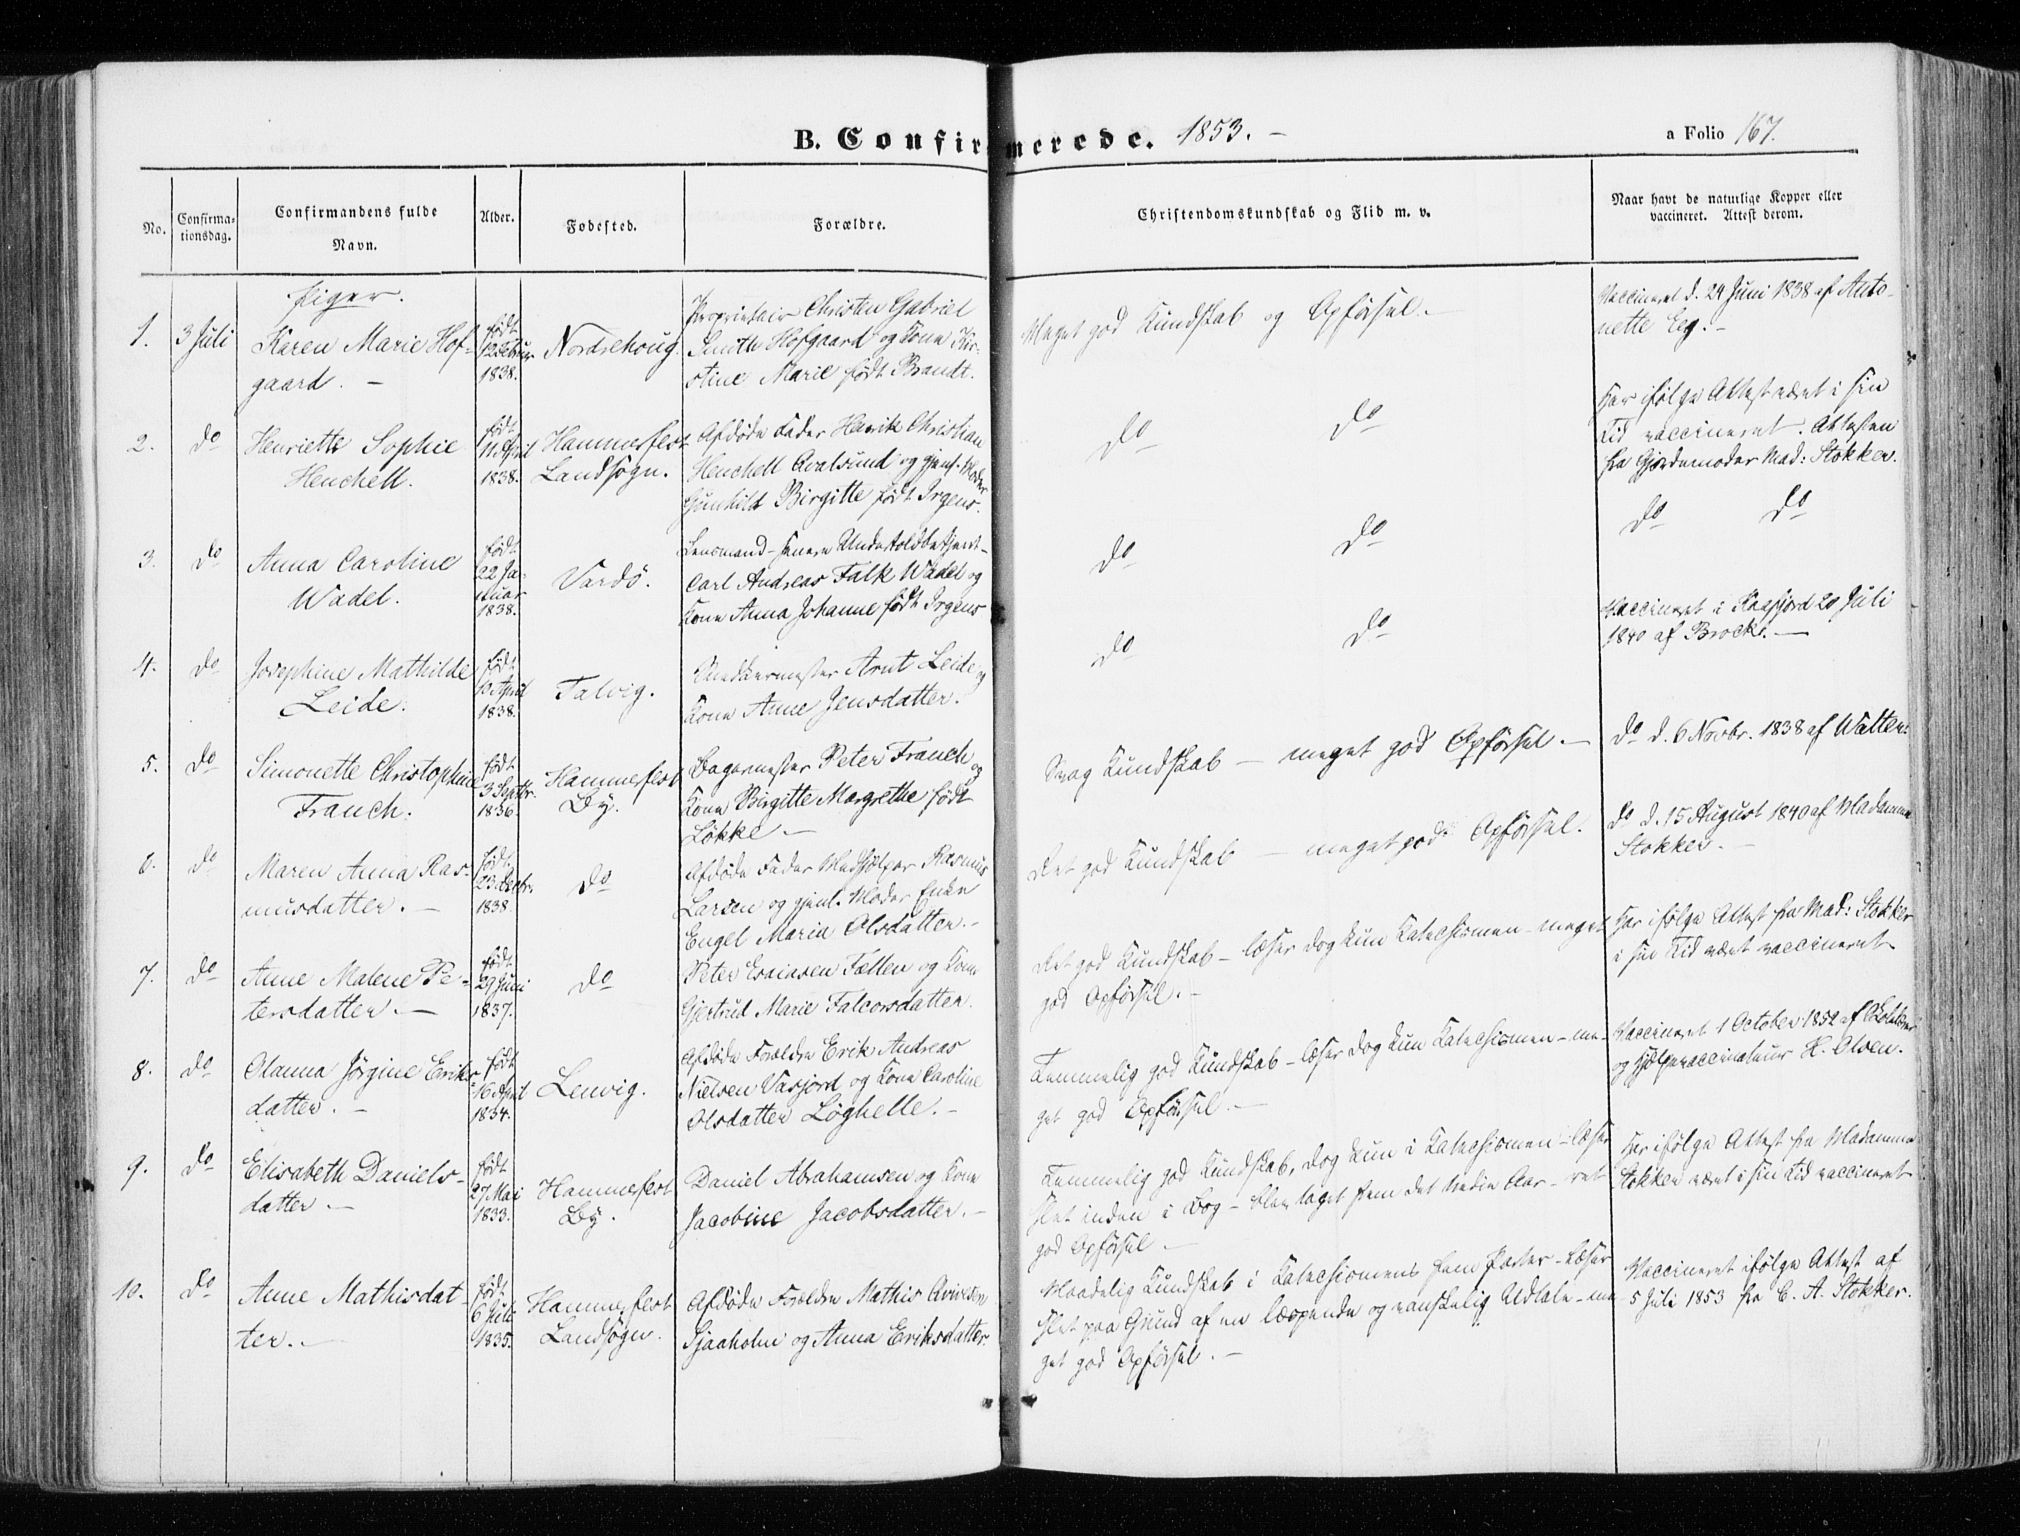 B. Confirmerede. 1853. –
a Folio 167.
No.
Confirma-
tionsdag.
Confirmandens fulde
Navn.
Alder.
Fødested.
Forældre.
Christendomskundskab og Flid m. v.
Naar havt de naturlige Kopper eller
vaccineret. Attest derom.
Piger.
1.
3 Juli
Karen Marie Hof-
gaard. –
født
12 Februar
1838.
Nordrehoug.
Proprietair Christen Gabriel
Smith Hofgaard og Kone Kir-
stine Marie født Brandt.
Meget god Kundskab og Opførsel. –
Vaccineret d. 24 Juni 1838 af Anto-
nette Eeg. –
2.
do
Henriette Sophie
Henchell.
født
11 April
1838.
Hammerfest
Landsogn.
Afdøde Fader Henrik Christian
Henchell Qvalsund og gjenl. Moder
Gunhild Birgitte født Irgens.
do do
Har ifølge Attest været i sin
Tid vaccineret. Attesten
fra Gjordemoder Mad: Stokken.
3.
do
Anna Caroline
Wadel.
født
22 Ja-
nuar
1838.
Vardö.
Lensmand – senere Undertoldbetjent –
Carl Andreas Falk Wadel og
Kone Anna Johanne født Irgens
do do
do do
4.
do
Josephine Mathilde
Leide.
født
10 April
1838.
Talvig.
Snedkermester Arnt Leide og
Kone Anne Jensdatter.
do do
Vaccineret i Kaafjord 20 Juli
1840 af Brocks. –
5.
do
Simonette Christophine
Franch.
født
3 Septbr.
1836.
Hammerfest
By.
Bagermester Peter Franch og
Kone Birgitte Margrethe født
Løkke –
Svag Kundskab – meget god Opførsel. –
do d. 6 Novbr. 1838 af Watten:
6.
do
Maren Anna Ras-
musdatter. –
født
23 Decbr.
1838.
do
Afdøde Fader Rasmus
Larsen og gjenl. Moder Enke
Engel Maria Olsdatter. –
Ret god Kundskab – meget god Opførsel.
do d. 15 August 1840 af Madamme
Stokken. –
7.
do
Anne Malene Pe-
tersdatter. –
født
29 Juni
1837.
do
Peter Esaiasen Fætten og Kone
Gjertrud Marie Falcorsdatter.
Ret god Kundskab – læser dog kun Katechismen – meget
god Opførsel. –
Har ifølge Attest fra Mad: Stokken
i sin Tid været vaccineret
8.
do
Olanna Jörgine Eriks-
datter. –
født
16 April
1834.
Lenvig.
Afdøde Forældre Erik Andreas
Nielsen Vasjord og Kone Caroline
Olsdatter Løghelle. –
Temmelig god Kundskab – læser dog kun Katechismen – me-
get god Opførsel. –
Vaccineret 1 October 1852 af
og Hjelpevaccinateur H. Olsen.
9.
do
Elisabeth Daniels-
datter. –
født
27 Mai
1833.
Hammerfest
By.
Daniel Abrahamsen og Kone
Jacobine Jacobsdatter. –
Temmelig god Kundskab, dog kun i Katechismen – læser
slet inden i Bog – blev taget frem det tredie Aar – ret
god Opførsel. –
Har ifølge Attest fra Madamme
Stokken været i sin Tid vaccineret
10.
do
Anne Mathisdat-
ter. –
født
6 Juli
1835.
Hammerfest
Landsogn.
Afdøde Forældre Mathis
Sjaaholm og Anna Eriksdatter.
Maadelig Kundskab i Katechismens fem Parter – læser
slet paa Grund af en læspende og vanskelig Udtale – me-
get god Opførsel. –
Vaccineret ifølge Attest af
5 Juli 1853 fra C. A. Stokken.